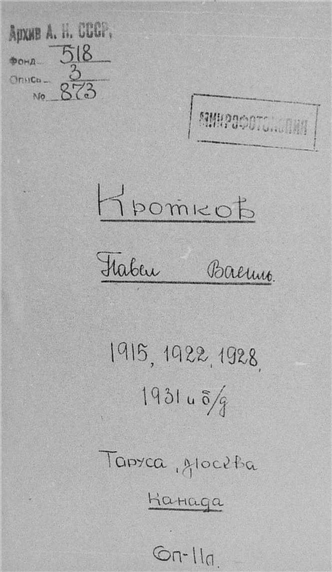 Архив А. Н. СССР.
Фонд 518
Опись 3
№ 873
МИКРОФОТОКОПИЯ
Кротков
Павел Василь.
1915, 1922, 1928,
1931 и б/д
Таруса, Москва
Канада
6п-11л.